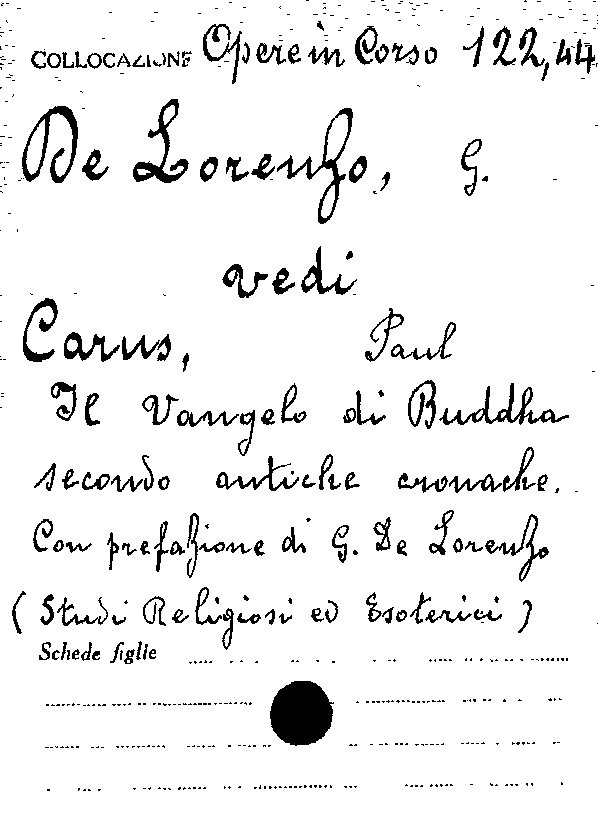 COLLOCAZIONE Opere in Corso 122,44
De Lorenzo, G.
vedi
Carus, Paul
Il Vangelo di Buddha
secondo antiche cronache.
Con prefazione di G. De Lorenzo
(Studi Religiosi ed Esoterici)
Schede figlie